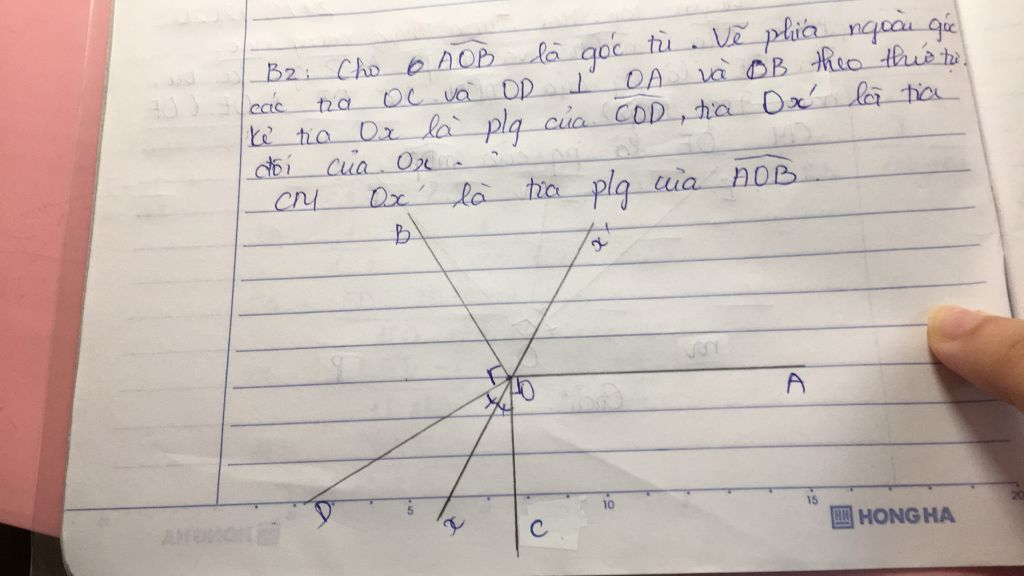 B2: Cho AOB là góc tù. Vẽ phiá ngoài góc
các tia OC và OD ⊥ OA và OB theo thứ tự.
kẻ tia Ox là plg của COD, tia Ox' là tia
đối của Ox.
CM Ox' là tia plg của AOB.
B
x'
O
A
D
x
C
5
10
15
20
HH HONG HA